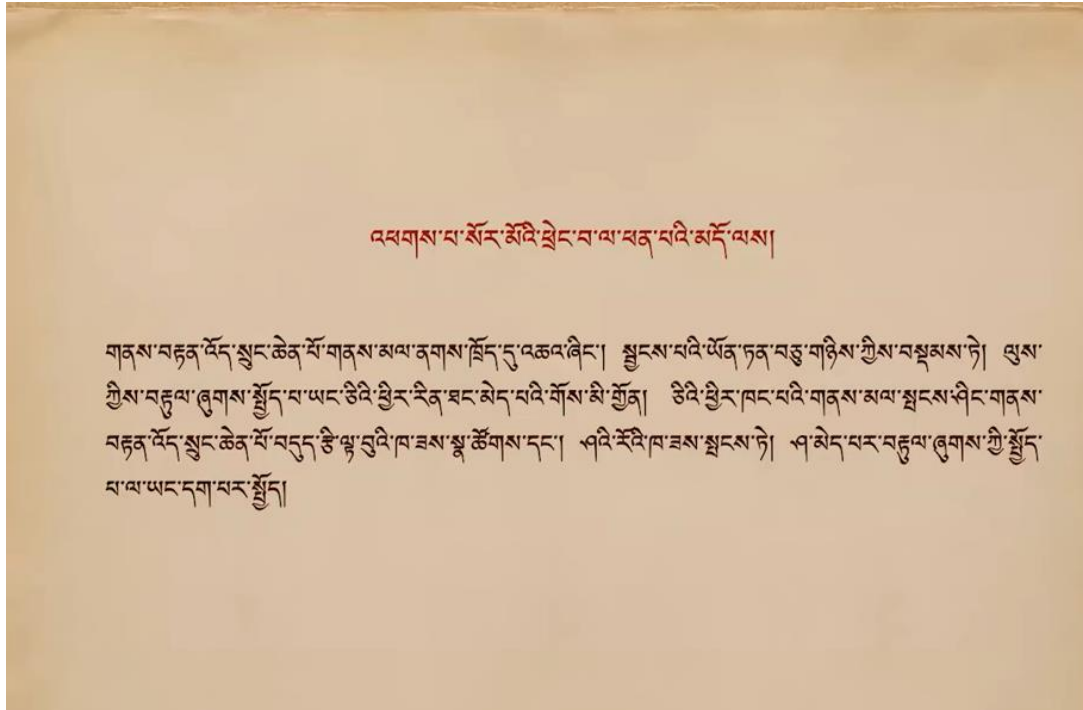 འཕགས་པ་སོར་མོའི་ཕྲེང་བ་ལ་ཕན་པའི་མདོ་ལས།
གནས་བརྟན་འོད་སྲུང་ཆེན་པོ་གནས་མལ་ནགས་ཁྲོད་དུ་འཆའ་ཞིང་། སྦྱངས་པའི་ཡོན་ཏན་བཅུ་གཉིས་ཀྱིས་བསྡམས་ཏེ། ལུས་
ཀྱིས་བརྟུལ་ཞུགས་སྤྱོད་པ་ཡང་ཅིའི་ཕྱིར་རིན་ཐང་མེད་པའི་གོས་མི་གྱོན། ཅིའི་ཕྱིར་ཁང་པའི་གནས་མལ་སྤངས་ཤིང་གནས་
བརྟན་འོད་སྲུང་ཆེན་པོ་བདུད་རྩི་ལྟ་བུའི་ཁ་ཟས་སྣ་ཚོགས་དང་། ཤའི་རོའི་ཁ་ཟས་སྤངས་ཏེ། ཤ་མེད་པར་བརྟུལ་ཞུགས་ཀྱི་སྤྱོད་
པ་ལ་ཡང་དག་པར་སྤྱོད།